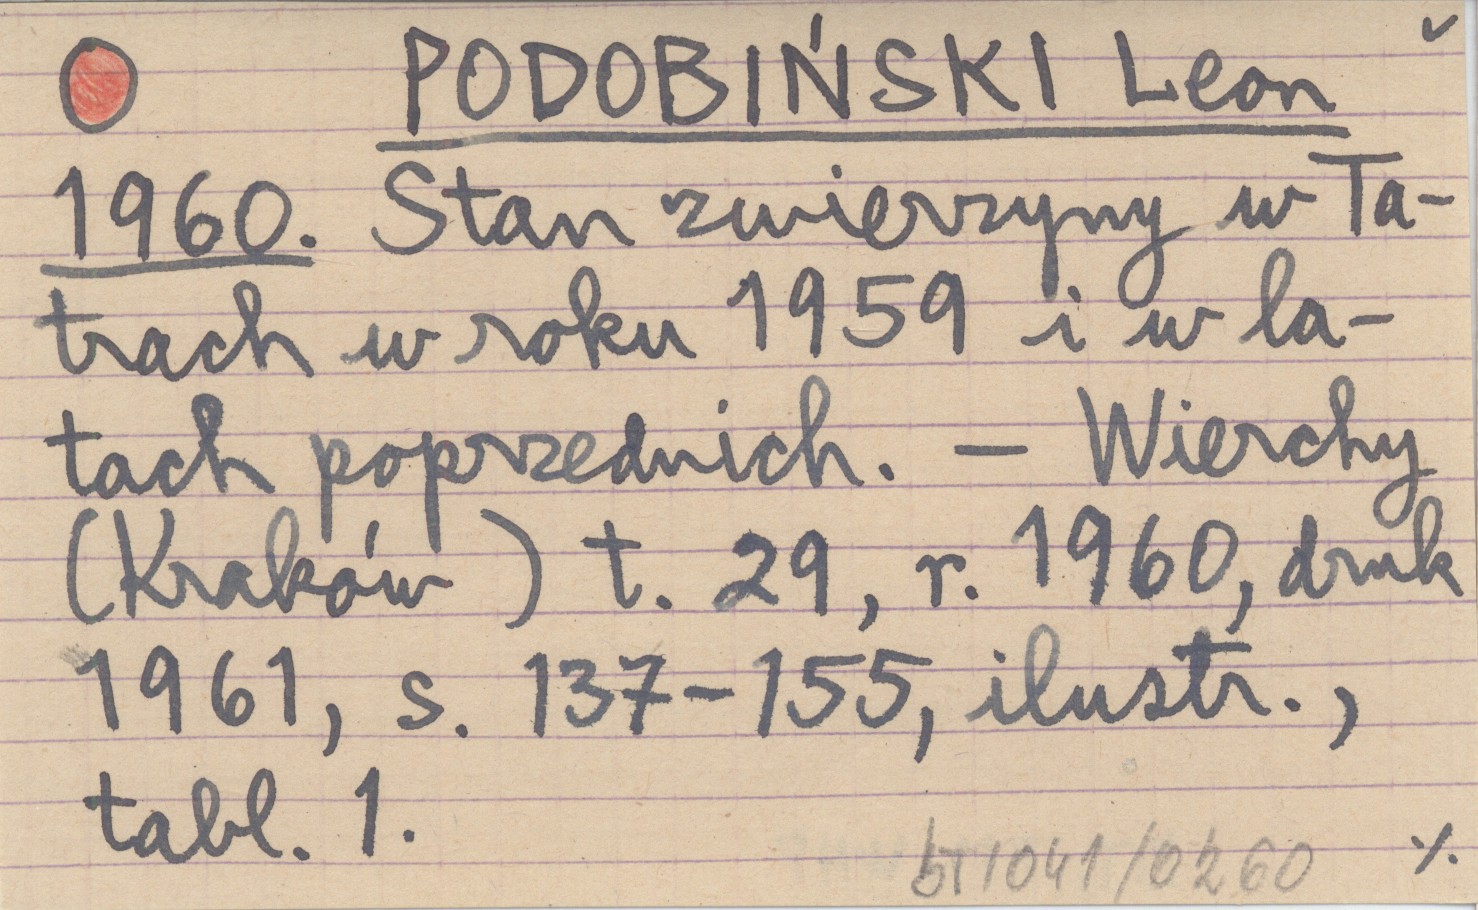 PODOBIŃSKI Leon
1960. Stan zwierzyny w Ta-
trach w roku 1959 i w la-
tach poprzednich. – Wierchy
(Kraków) t. 29, r. 1960, druk
1961, s. 137-155, ilustr.,
tabl. 1.
bT1041/0260